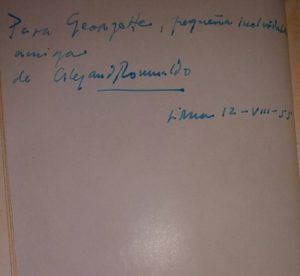 Para Georgette, pequeña inolvidable
amiga
de Alejandro Romualdo
Lima 12-VIII-55